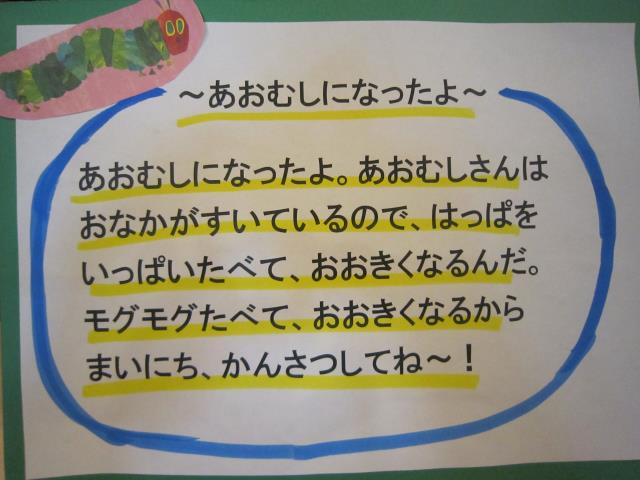 ～あおむしになったよ～
あおむしになったよ。あおむしさんは
おなかがすいているので、はっぱを
いっぱいたべて、おおきくなるんだ。
モグモグたべて、おおきくなるから
まいにち、かんさつしてね～！